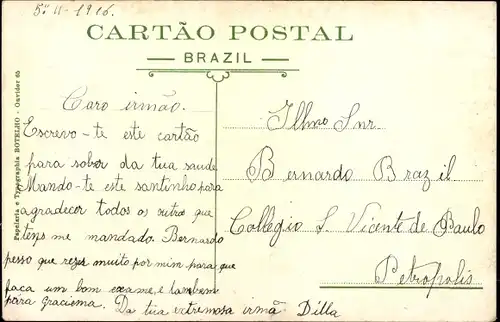 5.º 11-1916.
CARTÃO POSTAL
BRAZIL
Papelaria e Typographia BOTELHO - Ouvidor 65
Caro irmão.
Escrevo-te este cartão
para saber da tua saude
Mando-te este santinho para
agradecer todos os outro que
tens me mandado. Bernardo
pesso que rezes muito por mim para que
faça um bom exame, e tambem
para gracisma. Da tua extremosa irmã Dilla
Illmo Snr.
Bernardo Brazil
Collegio S. Vicente de Paulo
Petropolis